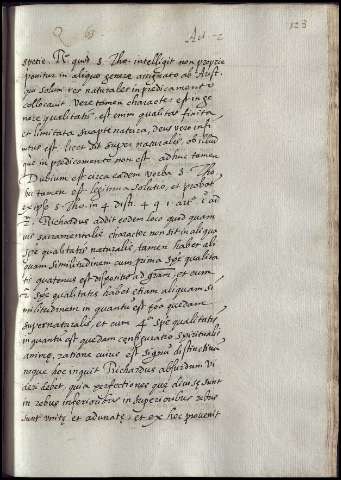 Q 63 Ad 2 123
specie. R. quod S. Tho. intelligit non proprie
ponitur in aliquo genere assignato ab Arist.
qui solum res naturales in predicamentis
collocavit vere tamen character est in ge
nere qualitatis est enim qualitas finita
et limitata suapte natura, deus vero infi
nitus est licet sit super naturales, ob idem
que in predicamento non est adhuc tamen
Dubium est circa eadem verba S. Tho
hec tamen est legitima solutio, et probat
ex ipso S. Tho. in 4 disti. 4 q 1 art. 1 ad
2. Richardus addit eodem loco quod quam
vis sacramentalis character non sit in aliqua
spe qualitatis naturalis, tamen habet ali
quam similitudinem cum prima spe qualita
tis quatenus est dispositio ad gram, et cum
2 spe qualitatis habet etiam aliquam si
militudinem in quantum est poa quedam
supernaturalis, et cum 4 spe qualitatis
in quantu est quedam configuratio spiritualis
animę, ratione cuius est signum distinctivum
neque hoc inquit Richardus absurdum vi
deri debet, quia perfectiones que divisę sunt
in rebus inferioribus in superioribus rebus
sunt unitę et adunatę. et ex hec provenit